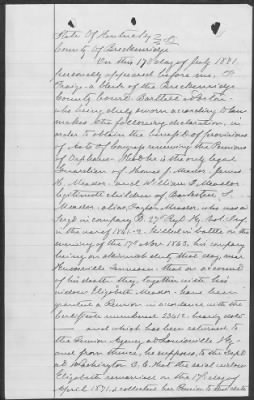 State of Kentucky
County of Breckenridge
On this 17th day of July 1881
personally appeared before me,
a clerk of the Breckenridge
County Court Bartlett
who being duly sworn according to law
makes the following declaration, in
order to obtain the benefit of provisions
of Acts of Congress reviewing the Pensions
of Orphans: That he is the only legal
Guardian of Thomas J. Meador, James
H. Meador, and William T. Meador
legitimate children of
Meador, alias Taylor Meador, who was a
in company 27th Regt Ky. Vol. Inf
in the war of 1861- killed in battle on the
evening of the 17th Nov. 1863, his company
being on that day, near
Knoxville Tennessee that on account
of his death they, together with his
widow Elizabeth Meador have been
granted a Pension in accordance with the
Certificate numbered
and which has been returned to
the Pension Agency at Louisville Ky.
and from thence, he supposes, to the Dept
at Washington D.C. that the said widow
Elizabeth remarried on the 17th day of
April 1871, &